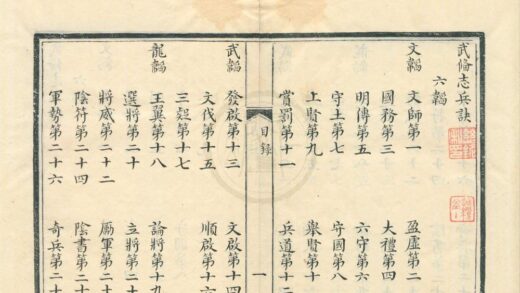 武俻志兵訣
六韜
文韜 文師第一 盈虛第二
國務第三 大禮第四
明傳第五 六守第六
守土第七 守國第八
上賢第九 舉賢第十
賞罰第十一 兵道第十二
目錄 一
武韜 發啟第十三 文啟第十四
文伐第十五 順啟第十六
三疑第十七
龍韜 王翼第十八 論將第十九
選將第二十 立將第二十
將威第二十二 勵軍第二十
陰符第二十四 陰書第二十
軍勢第二十六 奇兵第二十